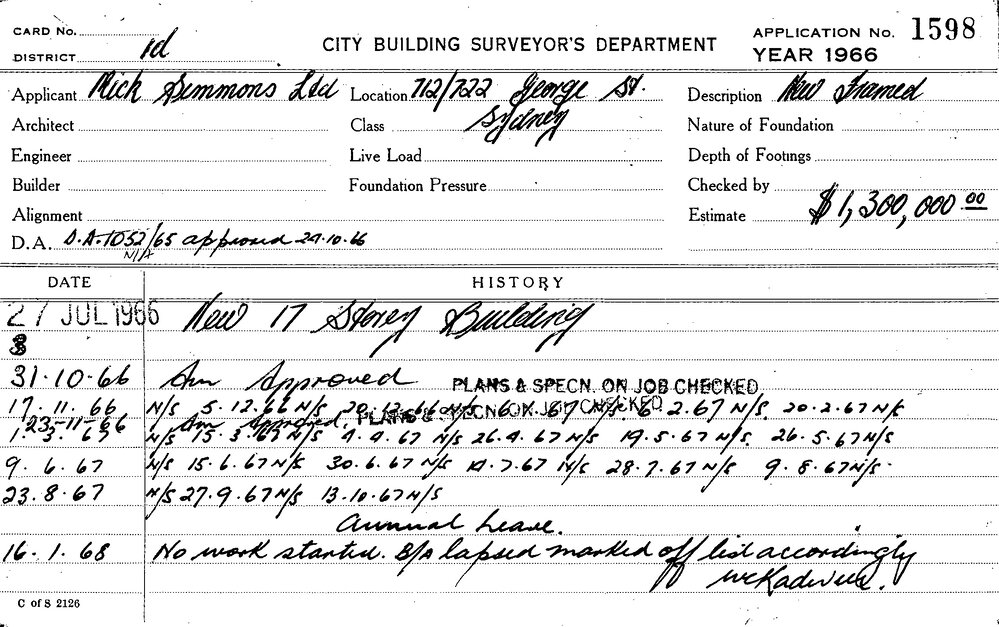 CARD No.
DISTRICT 1d
CITY BUILDING SURVEYOR'S DEPARTMENT
APPLICATION No. 1598
YEAR 1966
Applicant Mick Simmons Ltd Location 712/722 George St. Sydney Description New Framed
Architect Class Nature of Foundation
Engineer Live Load Depth of Footings
Builder Foundation Pressure Checked by
Alignment Estimate $1,300,000.00
D.A. D.A. 1052/65 approved 24.10.66
N/A
DATE HISTORY
27 JUL 1966 New 17 Storey Building
31·10·66 Am Approved PLANS & SPECN. ON JOB CHECKED
17.11.66 N/S 5.12.66 N/S 20.12.66 N/S 6.1.67 N/S 6.2.67 N/S. 20.2.67 N/S
23-11-66 Am Approved, PLANS & SPECN ON JOB CHECKED
1.3.67 N/S 15.3.67 N/S 4.4.67 N/S 26.4.67 N/S 19.5.67 N/S. 26.5.67 N/S
9.6.67 N/S 15.6.67 N/S 30.6.67 N/S 14.7.67 N/S 28.7.67 N/S 9.8.67 N/S.
23.8.67 N/S 27.9.67 N/S 13.10.67 N/S
Annual Leave.
16.1.68 No work started. B/A lapsed marked off list accordingly
C of S 2126